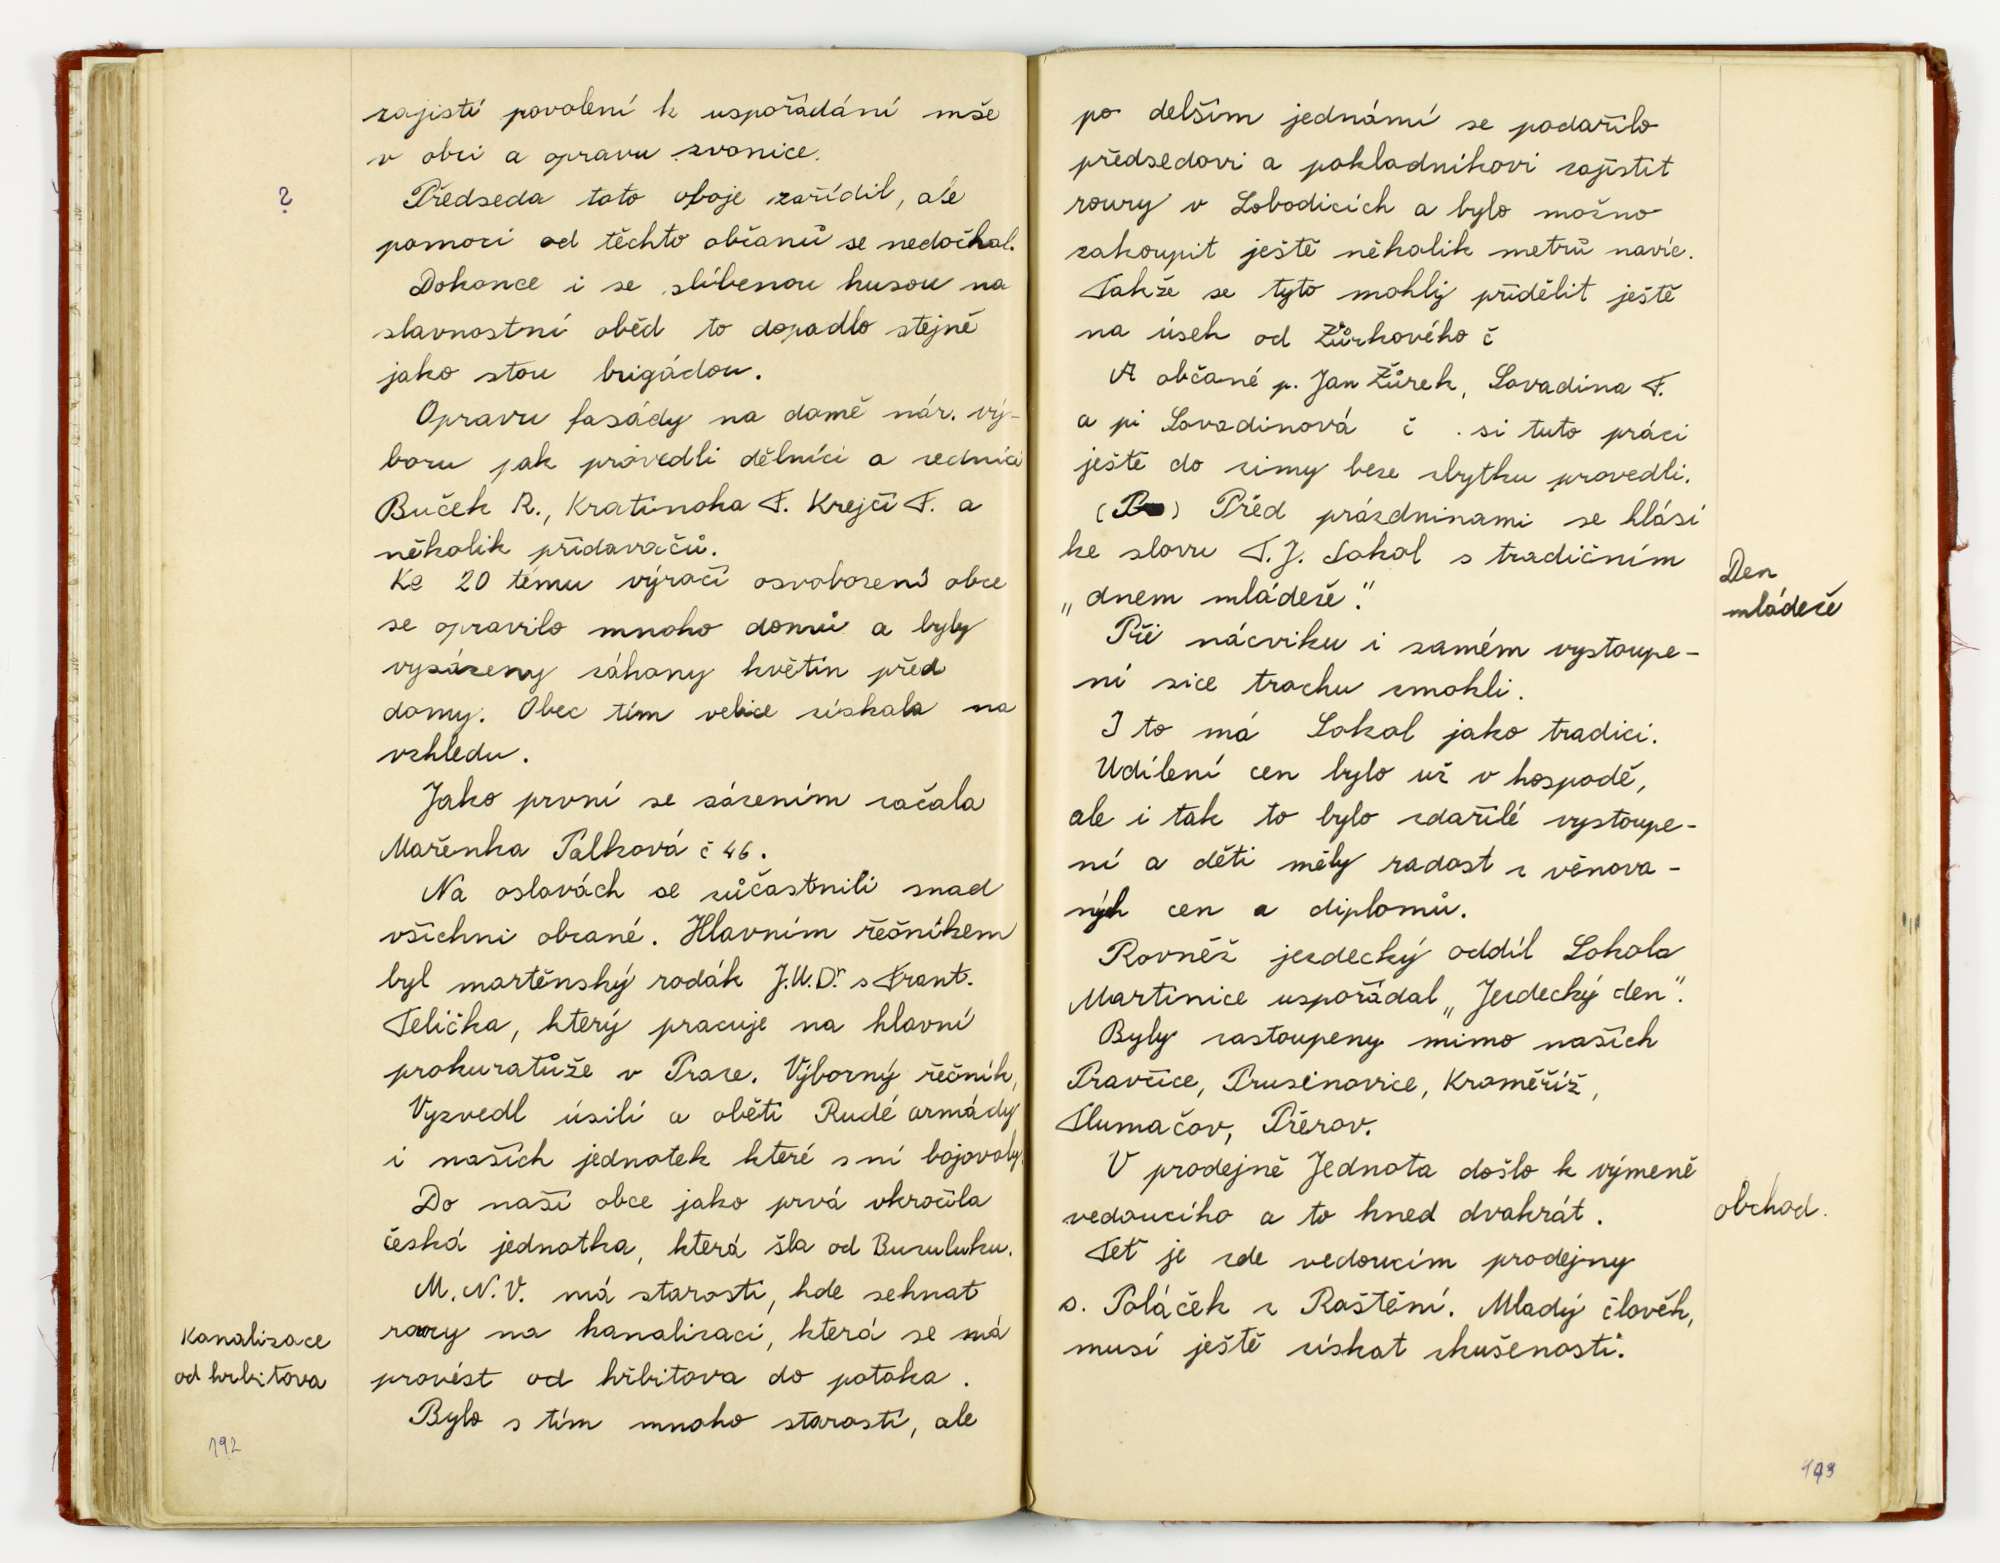 zajistí povolení k uspořádání mše
v obci a opravu zvonice.
?
Předseda toto oboje zařídil, ale
pomoci od těchto občanů se nedočkal.
Dokonce i se slíbenou husou na
slavnostní oběd to dopadlo stejně
jako stou brigádou.
Opravu fasády na domě nár. vý-
boru pak provedli dělníci a zedníci
Buček R., Kratinoha F. Krejčí F. a
několik přidavačů.
Ke 20 tému výročí osvobození obce
se opravilo mnoho domů a byly
vysázeny záhony květin před
domy. Obec tím velice získala na
vzhledu.
Jako první se sázením začala
Mařenka Pálková č 46.
Na oslavách se zůčastnili snad
všichni obcané. Hlavním řečníkem
byl martěnský rodák J.U.Dr. s Frant.
Telička, který pracuje na hlavní
prokuratůře v Praze. Výborný řečník,
Vyzvedl úsilí a oběti Rudé armády
i našich jednotek které s ní bojovaly.
Do naší obce jako prvá vkročila
česká jednotka, která šla od Buzuluku.
M.N.V. má starosti, kde sehnat
roury na kanalizaci, která se má
Kanalizace
od hrbitova
provést od hřbitova do potoka.
Bylo s tím mnoho starostí, ale
192
po delším jednámí se podařilo
předsedovi a pokladníkovi zajistit
roury v Lobodicích a bylo možno
zakoupit ještě několik metrů navíc.
Takže se tyto mohly přidělit ještě
na úsek od Žůrkového č
A občané p. Jan Žůrek, Lovadina F.
a pí Lovadinová č . si tuto práci
ještě do zimy beze zbytku provedli.
( ) Před prázdninami se hlásí
ke slovu T.J. Sokol s tradičním
„dnem mládeže".
Den
mládeže
Při nácviku i samém vystoupe-
ní sice trochu zmokli.
I to má Sokol jako tradici.
Udílení cen bylo už v hospodě,
ale i tak to bylo zdařilé vystoupe-
ní a děti měly radost z věnova-
ných cen a diplomů.
Rovněž jezdecký oddíl Sokola
Martinice uspořádal „Jezdecký den".
Byly zastoupeny mimo našich
Pravčice, Prusinovice, Kroměříž,
Tlumačov, Přerov.
V prodejně Jednota došlo k výmeně
obchod.
vedoucího a to hned dvakrát.
Teť je zde vedoucím prodejny
s. Poláček z Roštění. Mladý člověk,
musí ještě získat zkušenosti.
193